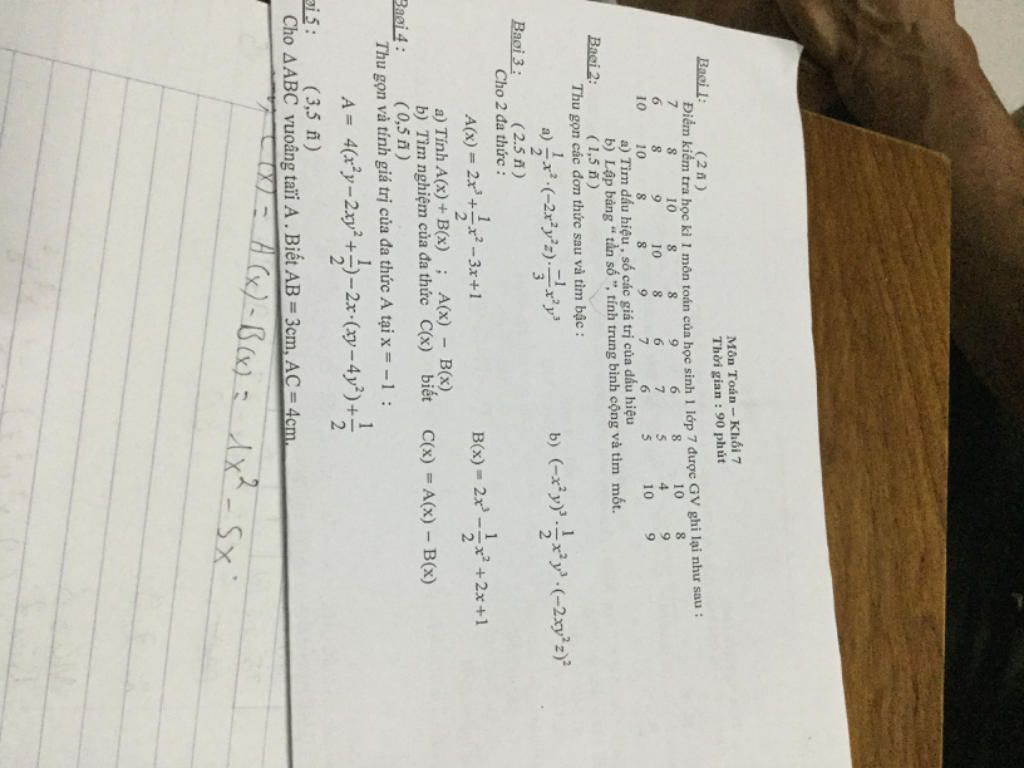 Môn Toán – Khối 7
Thời gian : 90 phút
Baøi 1: ( 2 ñ )
Điểm kiểm tra học kì 1 môn toán của học sinh 1 lớp 7 được GV ghi lại như sau :
7 8 10 8 8 9 6 8 10 8
6 8 9 10 8 6 7 5 4 9
10 10 8 8 9 7 6 5 10 9
a) Tìm dấu hiệu , số các giá trị của dấu hiệu
b) Lập bảng “ tần số ”, tính trung bình cộng và tìm mốt.
Baøi 2: ( 1,5 ñ )
Thu gọn các đơn thức sau và tìm bậc :
a) 1/2 x²·(−2x²y²z)·−1/3 x²y³ b) (−x²y)³·1/2 x²y³·(−2xy²z)²
Baøi 3 : ( 2.5 ñ )
Cho 2 đa thức :
A(x) = 2x³ + 1/2 x² − 3x + 1 B(x) = 2x³ − 1/2 x² + 2x + 1
a) Tính A(x) + B(x) ; A(x) − B(x)
b) Tìm nghiệm của đa thức C(x) biết C(x) = A(x) − B(x)
Baøi 4 : ( 0,5 ñ )
Thu gọn và tính giá trị của đa thức A tại x = −1 :
A = 4(x²y − 2xy² + 1/2) − 2x·(xy − 4y²) + 1/2
øi 5 : ( 3,5 ñ )
Cho ΔABC vuoâng taïi A . Biết AB = 3cm, AC = 4cm,
C(x) = A(x) - B(x) = 1x² - 5x